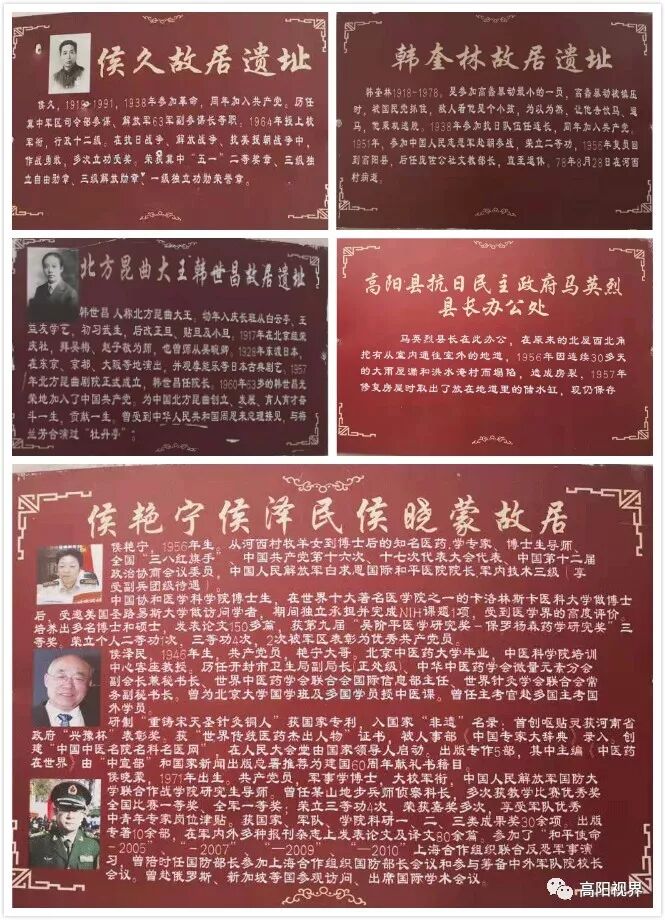 侯久故居遗址
侯久，1919-1991，1938年参加革命，同年加入共产党。历任
冀中军区司令部参谋、解放军63军副参谋长等职。1964年授上校
军衔，行政十二级。在抗日战争、解放战争、抗美援朝战争中，
作战勇敢，多次立功受奖。荣获冀中“五一”二等奖章、三级独
立自由勋章、三级解放勋章、一级独立功勋荣誉章。
韩奎林故居遗址
韩奎林1918-1978。是参加高蠡暴动最小的一员，高蠡暴动被镇压
时，被国民党抓住，敌人看他是个小孩，为以为然，让他去饮马、遛
马，他乘机逃脱。1938年参加抗日队伍任连长，同年加入共产党。
1951年，参加中国人民志愿军赴朝参战，荣立二等功，1956年复员回
到高阳县，后任庞佐公社文教部长，直至退休。78年8月28日在河西
村病逝。
北方昆曲大王韩世昌故居遗址
韩世昌 人称北方昆曲大王，幼年入庆长班从白云亭、王
益友学艺，初习武生，后改正旦、贴旦及小旦。1917年在北京组荣
庆社，拜吴梅、赵子敬为师，也曾师从吴瞿卿。1928年东渡日本，
在东京、京都、大阪等地演出，并观摩能乐等日本古典剧艺，1957
年北方昆曲剧院正式成立，韩世昌任院长。1960年63岁的韩世昌光
荣地加入了中国共产党。为中国北方昆曲创立、发展、育人育才奋
斗一生，贡献一生，曾受到中华人民共和国周恩来总理接见，与梅
兰芳合演过“牡丹亭”；
高阳县抗日民主政府马英烈
县长办公处
马英烈县长在此办公，在原来的北屋西北角
挖有从室内通往室外的地道，1956年因连续30多天
的大雨屋漏和洪水淹村而塌陷，造成房裂，1957年
修复房屋时取出了放在地道里的储水缸，现仍保存
侯艳宁侯泽民侯晓蒙故居
侯艳宁，1956年生。从河西村牧羊女到博士后的知名医药学专家、博士生导师、
全国“三八红旗手”、中国共产党第十六次、十七次代表大会代表、中国第十二届
政治协商会议委员，中国人民解放军白求恩国际和平医院院长，军内技术三级（享
受副兵团级待遇）。
中国协和医学科学院博士生，在世界十大著名医学院之一的卡洛林斯卡医科大学做博士
后，受邀美国圣路易斯大学做访问学者，期间独立承担并完成NIH课题1项，受到医学界的高度评价。
培养出多名博士和硕士，发表论文150多篇，获第九届“吴阶平医学研究奖－保罗杨森药学研究奖”三
等奖。荣立个人二等功1次，三等功4次，2次被军区表彰为优秀共产党员。
侯泽民，1946年生，共产党员，艳宁大哥。北京中医药大学毕业，中医科学院培训
中心客座教授。历任开封市卫生局副局长（正处级），中华中医药学会微量元素分会
副会长兼秘书长、世界中医药学会联合会国际信息部主任、世界针灸学会联合会常
务副秘书长。曾为北京大学国学班及多国学员授中医课。曾任主考官赴多国主考国
外学员。
研制“重铸宋天圣针灸铜人”获国家专利，入国家“非遗”名录；首创呕贴灵获河南省
政府“兴豫杯”表彰奖。获“世界传统医药杰出人物”证书，被人事部《中国专家大辞典》录入。创
建“中国中医名院名科名医网”，在人民大会堂由国家领导人启动。出版专作5部，其中主编《中医药
在世界》由“中宣部”和国家新闻出版总署推荐为建国60周年献礼书籍目。
侯晓蒙，1971年出生。共产党员，军事学博士，大校军衔，中国人民解放军国防大
学联合作战学院研究生导师。曾任某山地步兵师侦察科长，多次获教学比赛优秀奖
全国比赛一等奖、全军一等奖；荣立三等功4次，荣获嘉奖多次，享受军队优秀
中青年专家岗位津贴。获国家、军队、学院科研一、二、三类成果奖30余项。出版
专著10余部，在军内外多种报刊杂志上发表论文及译文80余篇。参加了“和平使命
-2005”、“-2007”、“—2009”、“—2010”上海合作组织联合反恐军事演
习。曾陪时任国防部长参加上海合作组织国防部长会议和参与筹备中外军队院校长
会议。曾赴俄罗斯、新加坡等国参观访问、出席国际学术会议。
高阳视界